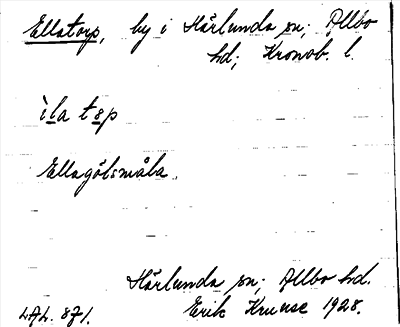 Ellatorp, by i Härlunda sn; Allbo
hd; Kronob. l.
ìla tɵp
Ellagölsmåla.
Härlunda sn; Allbo hd.
LAL. 871. Erik Kruuse 1928.